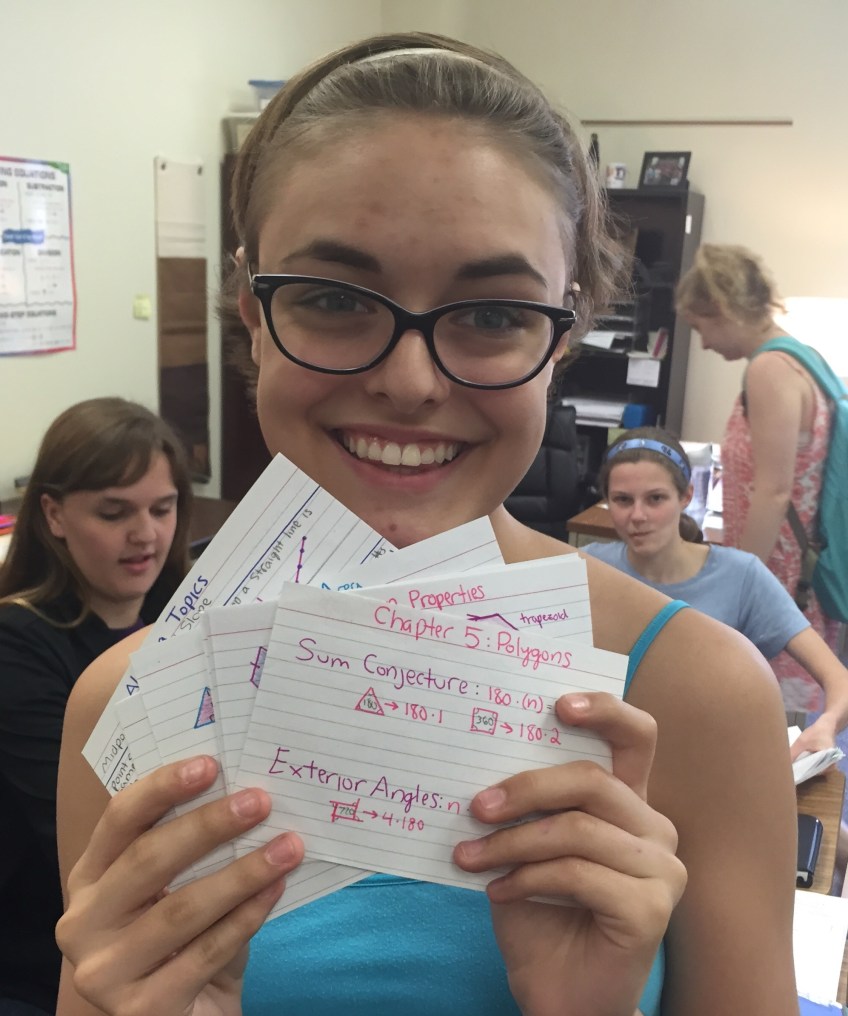 SUBTRACTION
EQUATIONS
Topics
Slope
a Straight line is
Midpo
point
Properties
trapezoid
Chapter 5: Polygons
Sum Conjecture: 180·(n)=
180 → 180·1 360 → 180·2
Exterior Angles: n
720 → 4·180